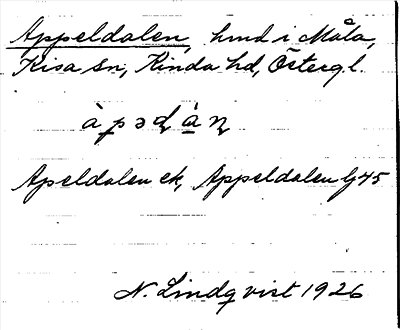 Appeldalen, hmd i Måla,
Kisa sn, Kinda hd, Östergl.
àpəḍáṇ
Apeldalen ek, Appeldalen Gj 45
N. Lindqvist 1926